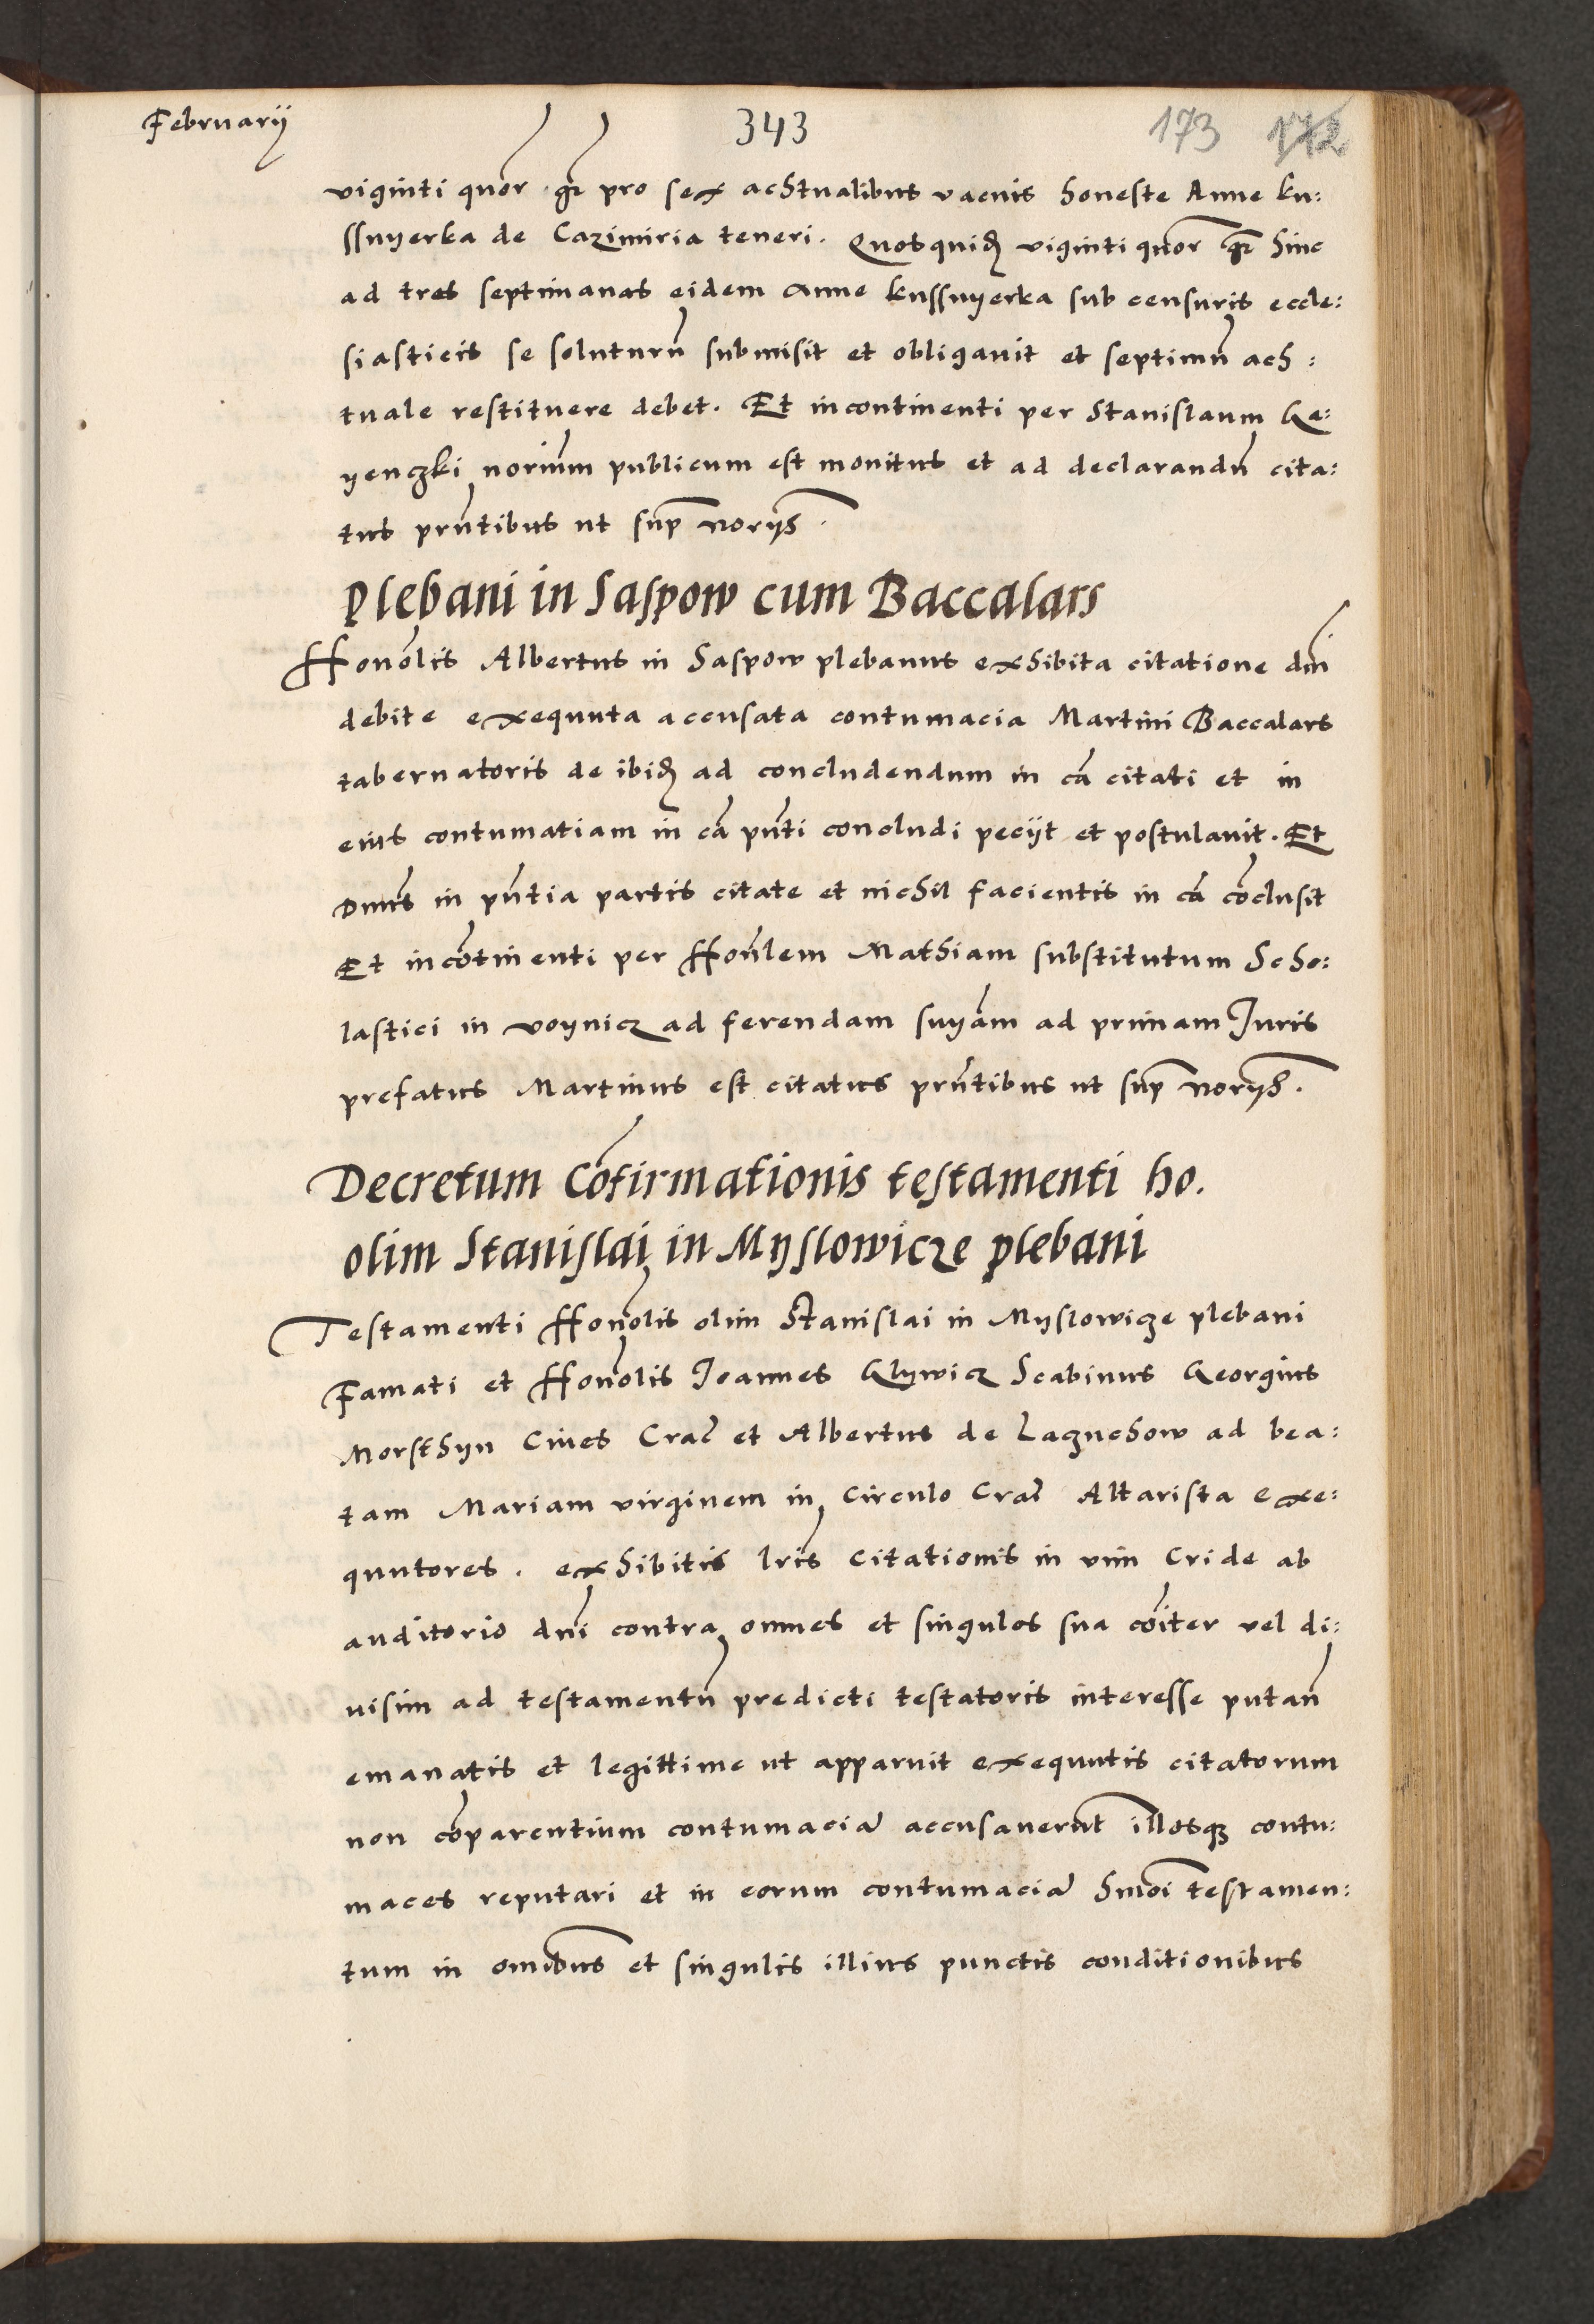 Februarij
343
173 172
viginti quor gr pro sex achtualibus vacuis honeste Anne ku:
ssnyerka de Cazimiria teneri. Quosquid viginti quor gr hinc
ad tres septimanas eidem Anne kussnyerka sub censuris eccle:
siasticis se soluturu submisit et obligauit et septimu ach:
tuale restituere debet. Et incontinenti per Stanislaum Ge:
yenczki norium publicum est monitus et ad declarandu cita:
tus prntibus ut sup norijs.
Plebani in Saspow cum Baccalars
Honolis Albertus in Saspow plebanus exhibita citatione dni
debite exequuta accusata contumacia Martini Baccalars
tabernatoris de ibid ad concludendum in ca citati et in
eius contumatiam in ca pnti concludi pecijt et postulauit. Et
Dnus in pntia partis citate et nichil facientis in ca coclusit
Et incotinenti per Honlem Mathiam substitutum Scho:
lastici in voynicz ad ferendam snyam ad primam Juris
prefatus Martinus est citatus prntibus ut sup norijs.
Decretum Cofirmationis testamenti ho.
olim Stanislai in Myslowicze plebani
Testamenti Honolis olim Stanislai in Myslowicze plebani
Famati et Honolis Joannes Glywicz Scabinus Georgius
Morsthyn Ciues Crac et Albertus de Lagwchow ad bea:
tam Mariam virginem in Circulo Crac Altarista exe:
quutores. exhibitis lris Citationis in vim Cride ab
auditorio dni contra omnes et singulos sua coiter vel di:
uisim ad testamentu predicti testatoris interesse putan
emanatis et legittime ut apparuit exequutis citatorum
non coparentium contumacia accusauerut illosq contu:
maces reputari et in eorum contumacia hmoi testamen:
tum in omibus et singulis illius punctis conditionibus